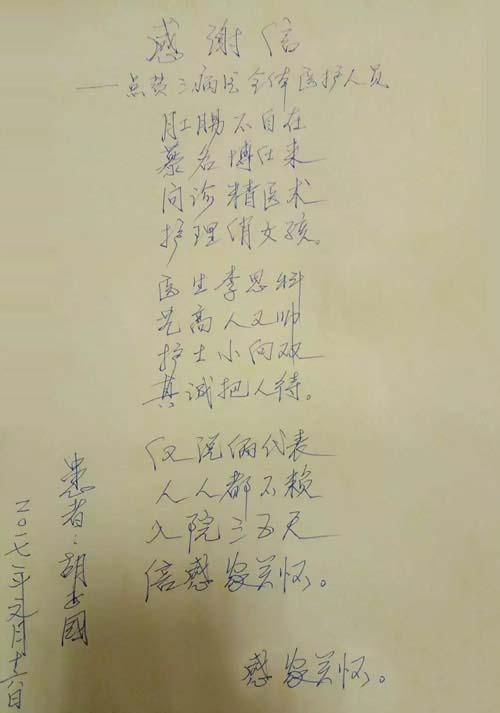 感谢信
——点赞三病区全体医护人员
肛肠不自在
慕名博仕来
问诊精医术
护理俏女孩。
医生李思科
艺高人又帅
护士小向双
真诚把人待。
仅说俩代表
人人都不赖
入院三五天
倍感家关怀。
感家关怀。
患者：胡玉國
二〇一七年元月十六日